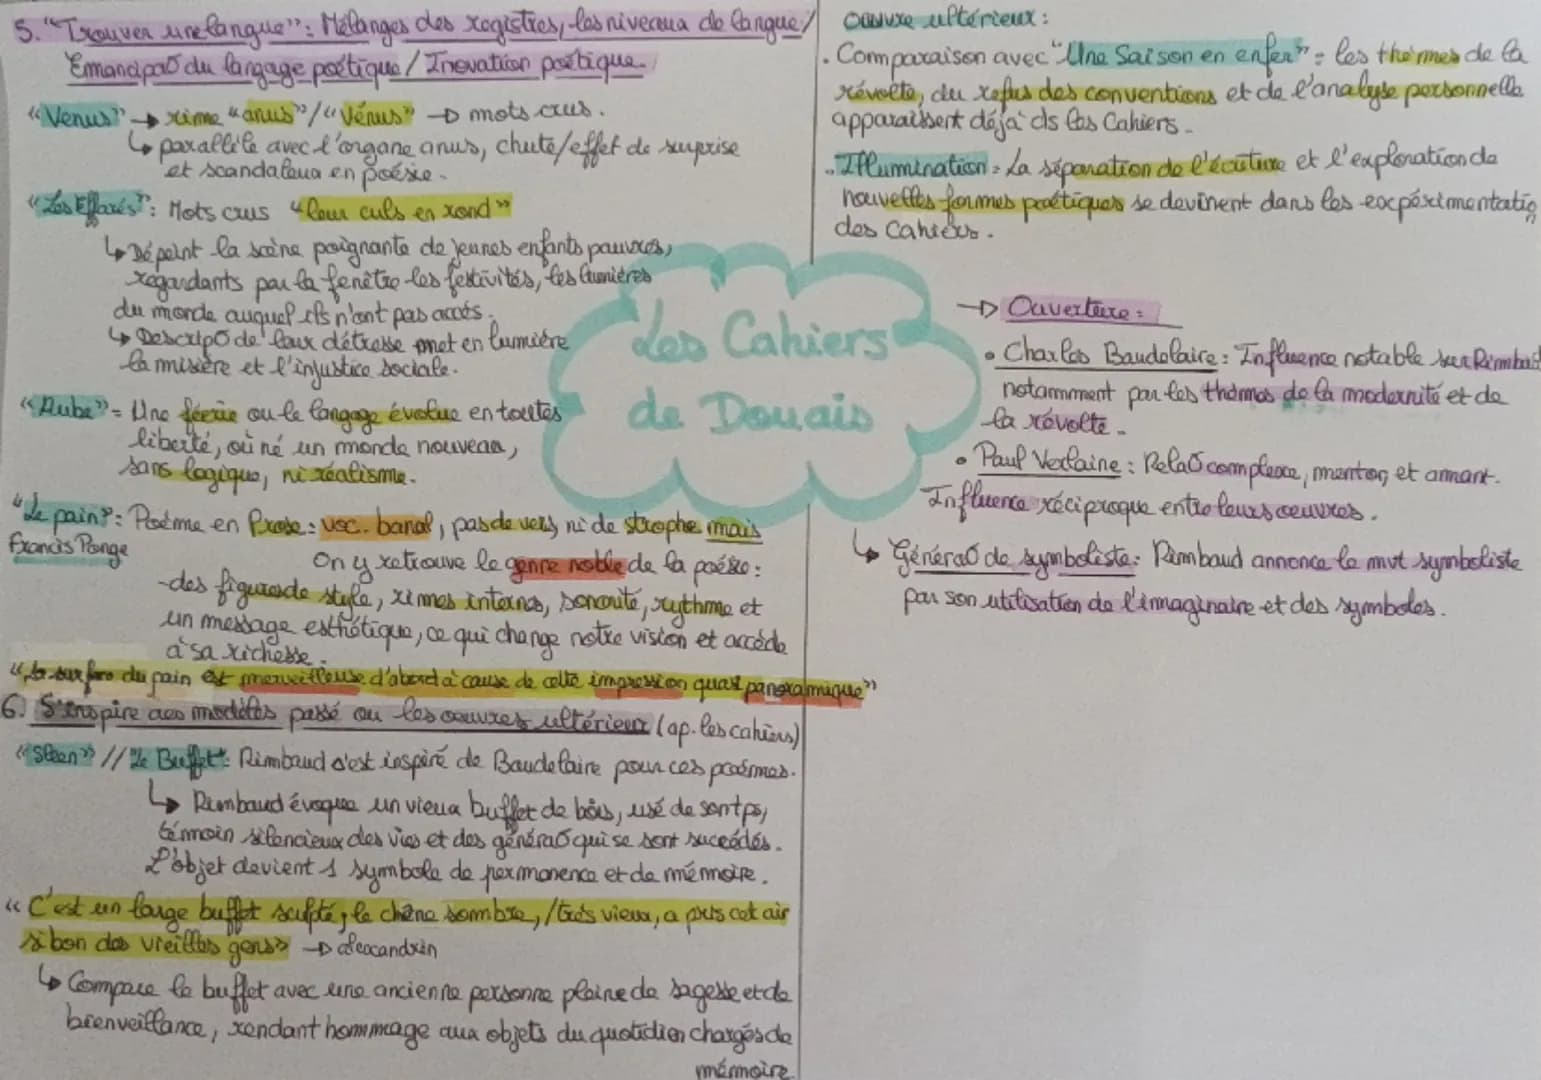 5. "Trouver une langue": Mélanges des registres, les niveaux de langue/
Emancipa° du langage poétique/Inovation poétique.
"Venus" → rime "anus"/"Vénus" → mots crus.
↳ parallèle avec l'organe anus, chute/effet de surprise
et scandaleux en poésie.
"Les Effarés": Mots crus "leur culs en rond"
↳ Dépeint la scène poignante de jeunes enfants pauvres,
regardants par la fenêtre les festivités, les lumières
du monde auquel ils n'ont pas accès.
↳ Descrip° de leur détresse met en lumière
la misère et l'injustice sociale.
"Aube" = Une féerie ou le langage évolue en toutes
liberté, où né un monde nouveau,
sans logique, ni réalisme.
"Le pain": Poème en Prose: voc. banal, pas de vers ni de strophe mais
Francis Ponge
On y retrouve le genre noble de la poésie:
-des figures de style, rimes internes, sonorité, rythme et
un message esthétique, ce qui change notre vision et accède
à sa richesse.
"la surface du pain est merveilleuse d'abord à cause de cette impression quasi panoramique"
6. S'inspire des modèles passé ou les oeuvres ultérieur (ap. les cahiers)
"Spleen" // "Le Buffet": Rimbaud s'est inspiré de Baudelaire pour ces poèmes.
↳ Rimbaud évoque un vieux buffet de bois, usé de son tps,
témoin silencieux des vies et des généra° qui se sont succédés.
L'objet devient 1 symbole de permanence et de mémoire.
"C'est un large buffet sculpté; le chêne sombre, /très vieux, a pris cet air
si bon des vieilles gens" → alexandrin
↳ Compare le buffet avec une ancienne personne pleine de sagesse et de
bienveillance, rendant hommage aux objets du quotidien chargés de
mémoire.
Oeuvre ultérieux:
. Comparaison avec "Une Saison en enfer" = les thèmes de la
révolte, du refus des conventions et de l'analyse personnelle
apparaissent déjà ds les Cahiers.
. Illumination = La séparation de l'écriture et l'exploration de
nouvelles formes poétiques se devinent dans les expérimentation
des Cahiers.
Les Cahiers
de Douais
→ Ouverture:
• Charles Baudelaire: Influence notable sur Rimbaud
notamment par les thèmes de la modernité et de
la révolte.
• Paul Verlaine: Rela° complexe, mentor, et amant.
Influence réciproque entre leurs oeuvres.
↳ Généra° de symboliste: Rimbaud annonce le mvt symboliste
par son utilisation de l'imaginaire et des symboles.